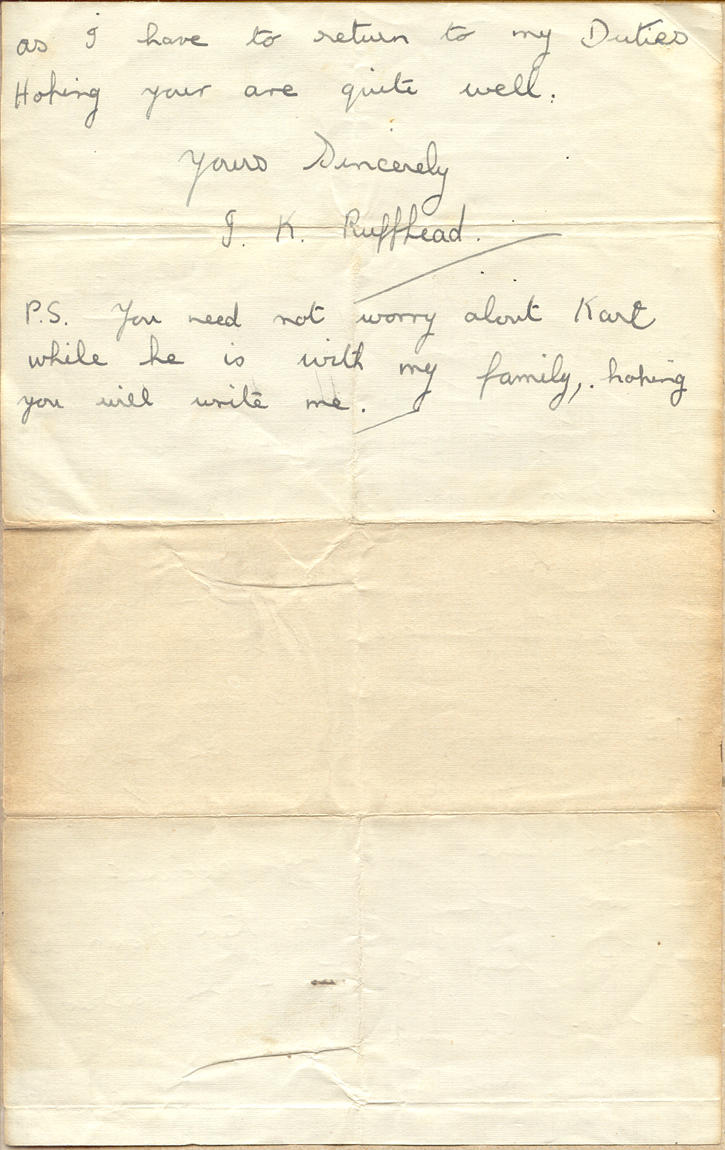 as I have to return to my Duties
Hoping your are quite well.
Yours Sincerely
J. K. Ruffhead.
P.S. You need not worry about Kart
while he is with my family, hoping
you will write me.